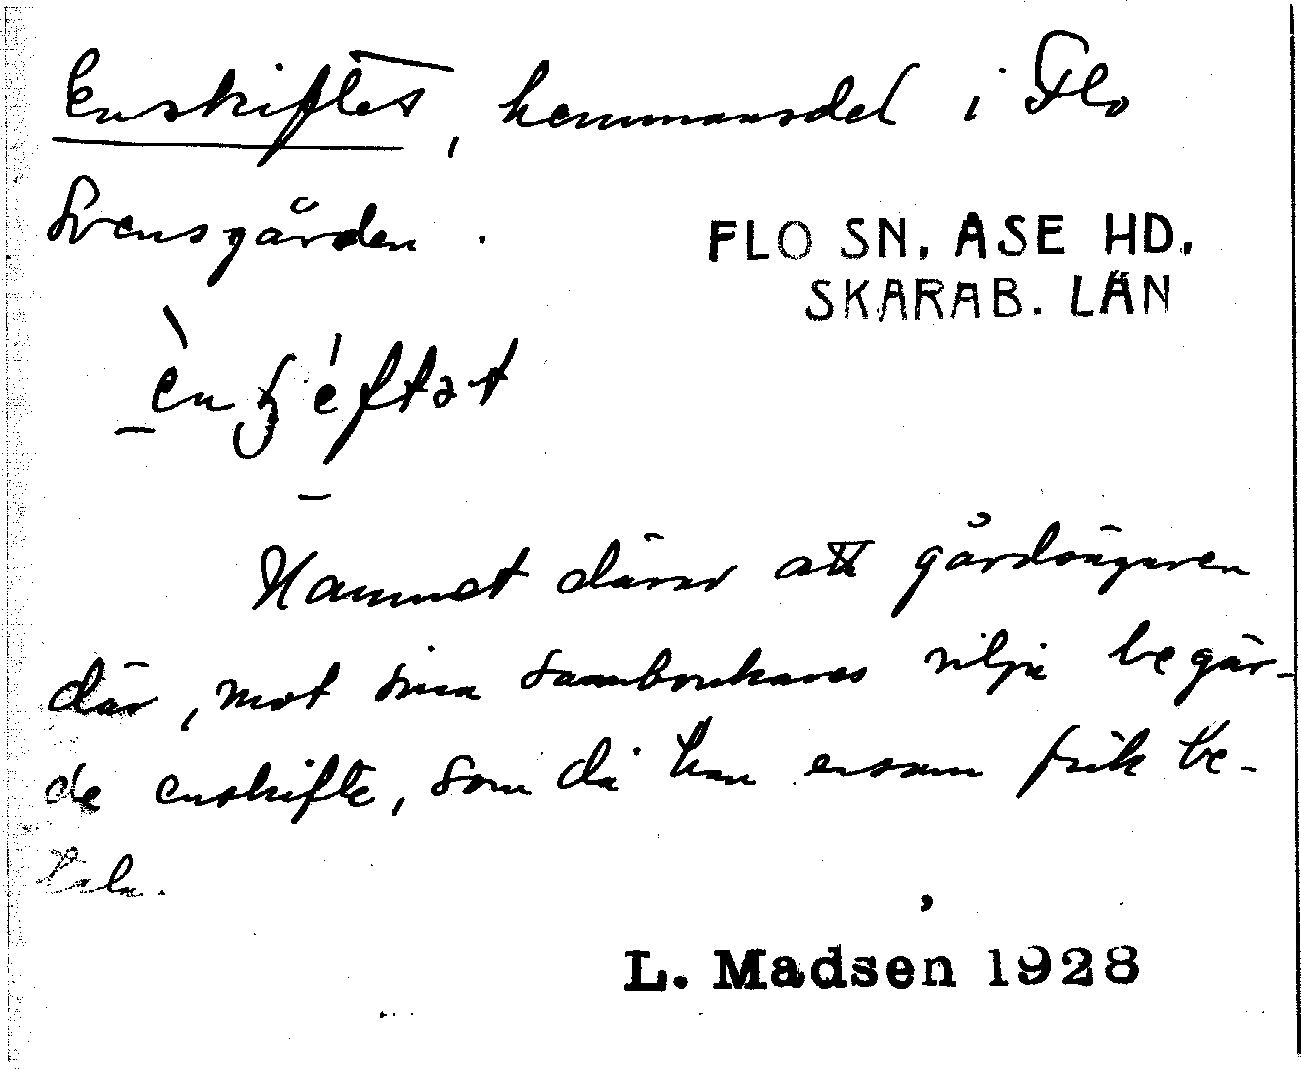 Enskiftet, hemmansdel i Flo
Svensgården.
FLO SN. ASE HD.
SKARAB. LÄN
Namnet därav att gårdsägaren
där, mot sina sambrukares vilja begär-
de enskifte, som då han ensam fick be-
tala.
L. Madsen 1928